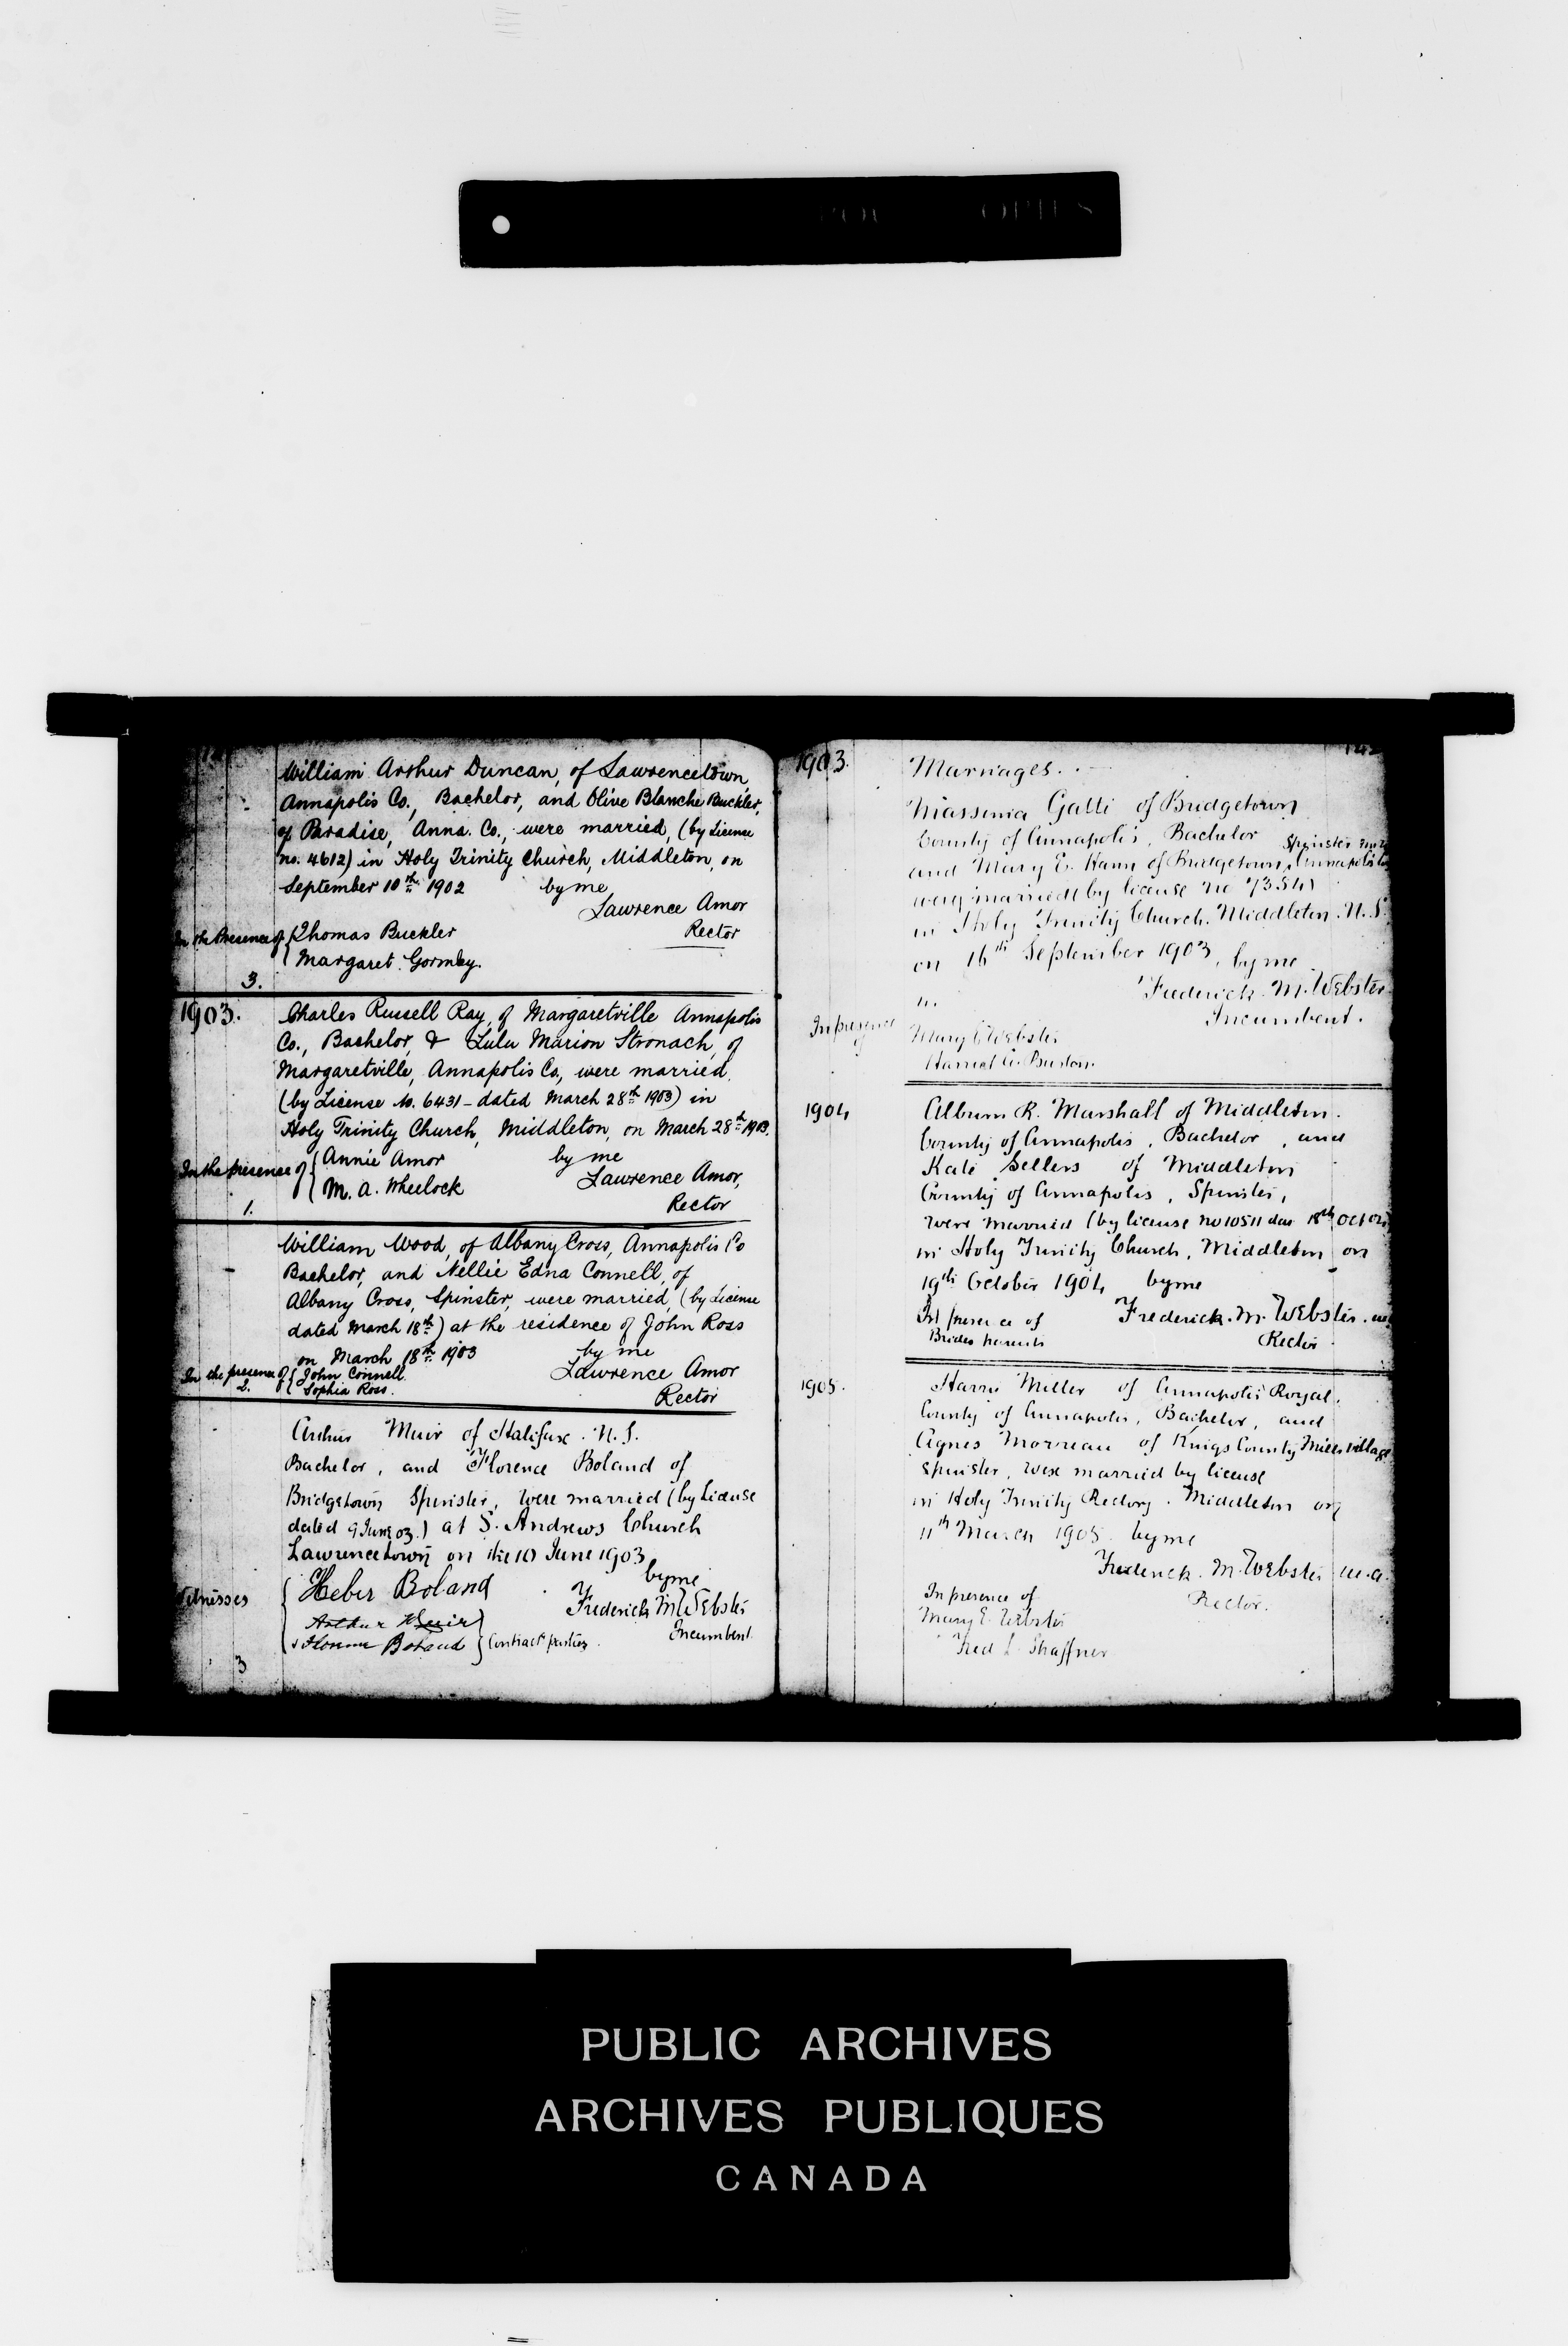 William Arthur Duncan, of Lawrencetown,
Annapolis Co., Bachelor, and Olive Blanche Buckler,
of Paradise, Anna. Co., were married, (by License
no. 4612) in Holy Trinity Church, Middleton, on
September 10th 1902 by me,
Lawrence Amor
Rector
In the Presence of { Thomas Buckler
Margaret Gormley.
3.
1903. Charles Russell Ray, of Margaretville Annapolis
Co., Bachelor, & Lulu Marion Stronach, of
Margaretville, Annapolis Co., were married,
(by License No. 6431 - dated March 28th 1903) in
Holy Trinity Church, Middleton, on March 28th 1903.
In the presence of { Annie Amor by me
M. A. Wheelock Lawrence Amor,
1. Rector
William Wood, of Albany Cross, Annapolis Co
Bachelor, and Nellie Edna Connell, of
Albany Cross, Spinster, were married, (by License
dated March 18th) at the residence of John Ross
on March 18th 1903 by me
In the presence of { John Connell. Lawrence Amor
2. Sophia Ross. Rector
Arthur Muir of Halifax. N.S.
Bachelor, and Florence Boland of
Bridgetown Spinster, were married (by License
dated 9 June 03.) at S. Andrews Church
Lawrencetown on the 10 June 1903
by me
Witnesses { Heber Boland Frederick M Webster
Arthur Muir } Incumbent.
& Florence Boland } Contract parties.
3
1903. Marriages.
Gatti of Bridgetown
County of Annapolis, Bachelor Spinster
and Mary E. of Bridgetown, Annapolis Co
were married by license no 7354
in Holy Trinity Church. Middleton. N.S.
on 16th September 1903, by me
Frederick. M. Webster
Incumbent.
In presence of Mary E Webster
Harriet
1904 Album R. Marshall of Middleton.
County of Annapolis, Bachelor, and
Kate Sellers of Middleton
County of Annapolis, Spinster,
were married (by license no 10511 18th Oct
in Holy Trinity Church, Middleton on
19th October 1904 by me
In presence of Frederick. M. Webster.
Brides parents Rector
1905. Harris Miller of Annapolis Royal,
County of Annapolis, Bachelor, and
Agnes Morreau of Kings County Mills village
Spinster, were married by license
in Holy Trinity Rectory. Middleton on
11th March 1905. by me
Frederick. M. Webster M.A.
In presence of Rector.
Mary E. Webster
Fred L. Shaffner
PUBLIC ARCHIVES
ARCHIVES PUBLIQUES
CANADA